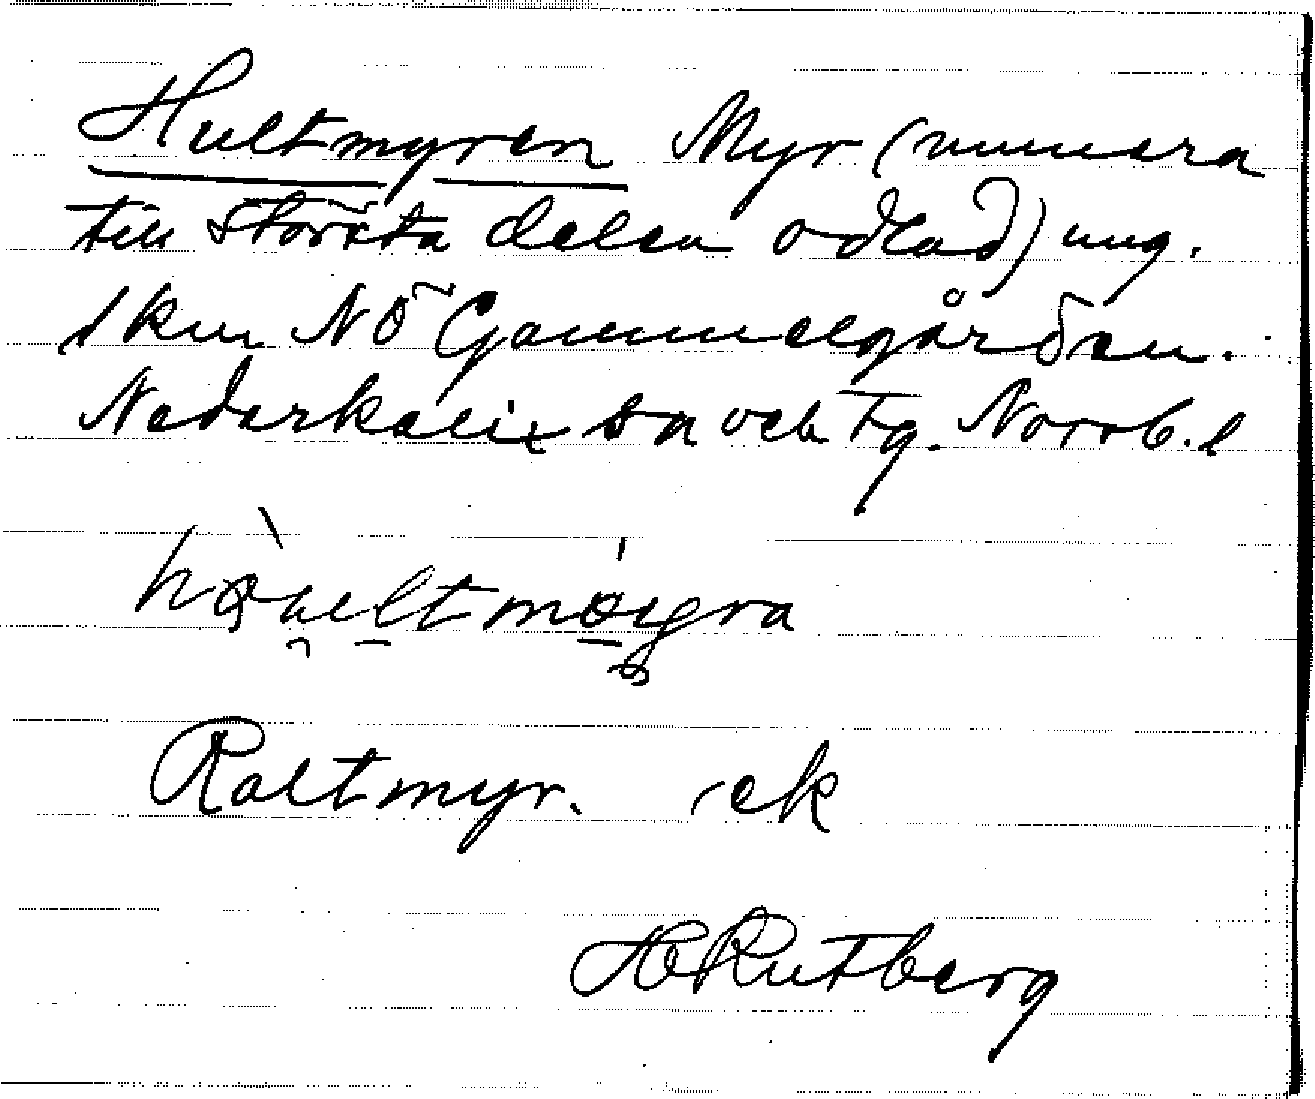 Hultmyren Myr (numera
till största delen odlad) ung.
1 km NÖ Gammelgården.
Nederkalix sn och tg. Norrb. l
Raltmyr. ek
H Rutberg